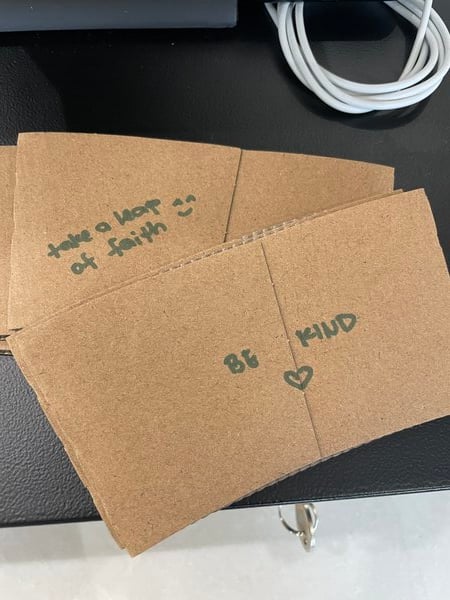 take a leap ^^
of faith
BE KIND
♡